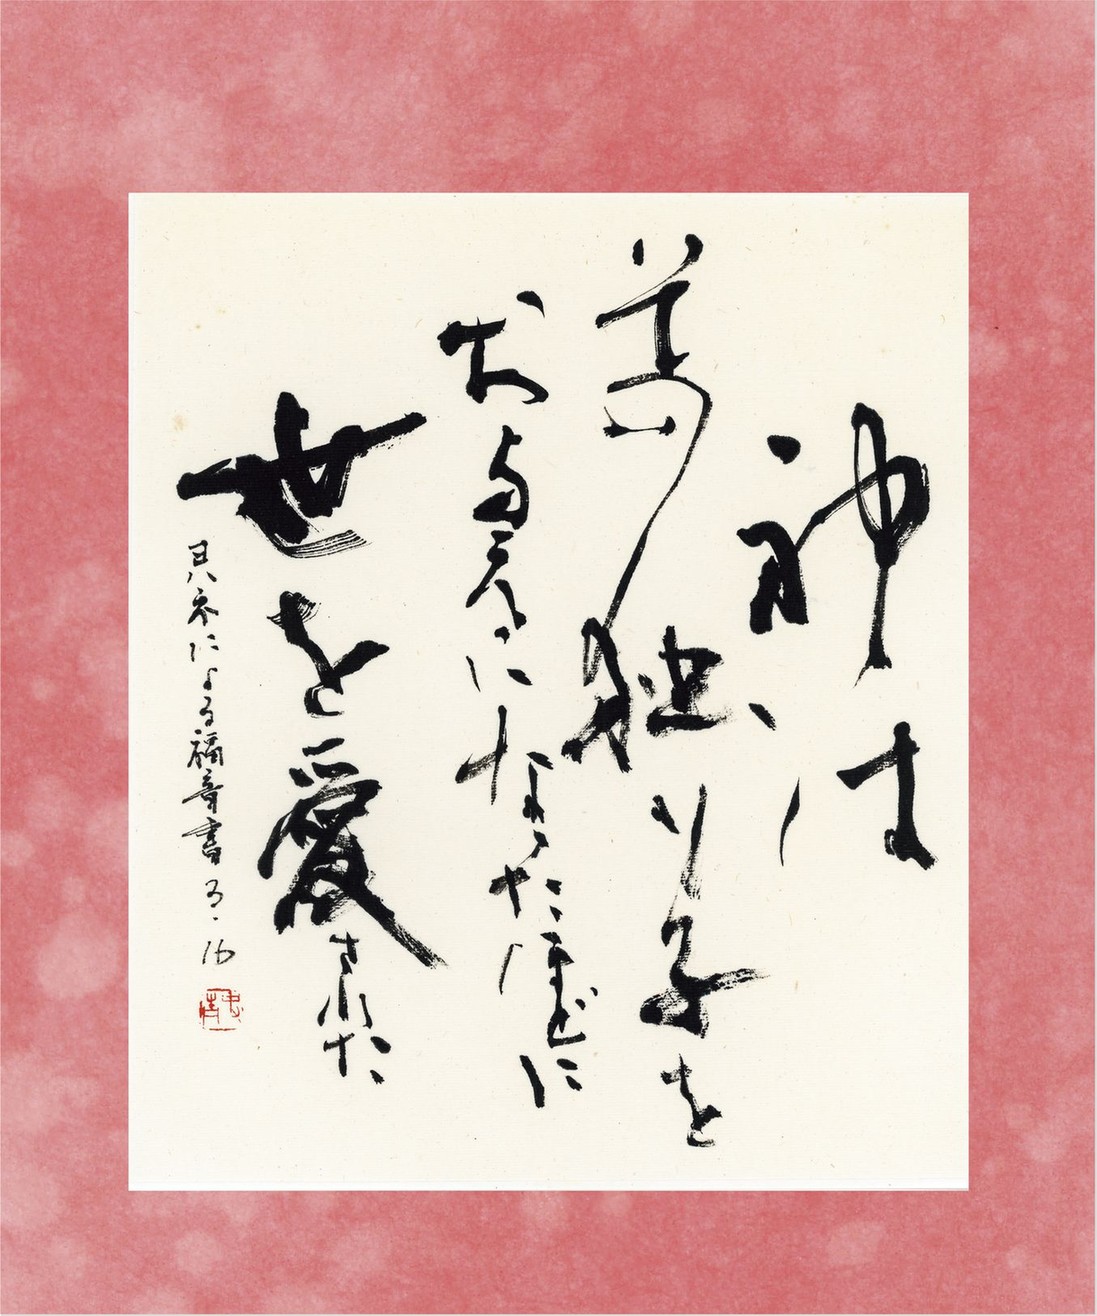 神は、
その独り子を
お与えになったほどに
世を愛された
ヨハネによる福音書3・16